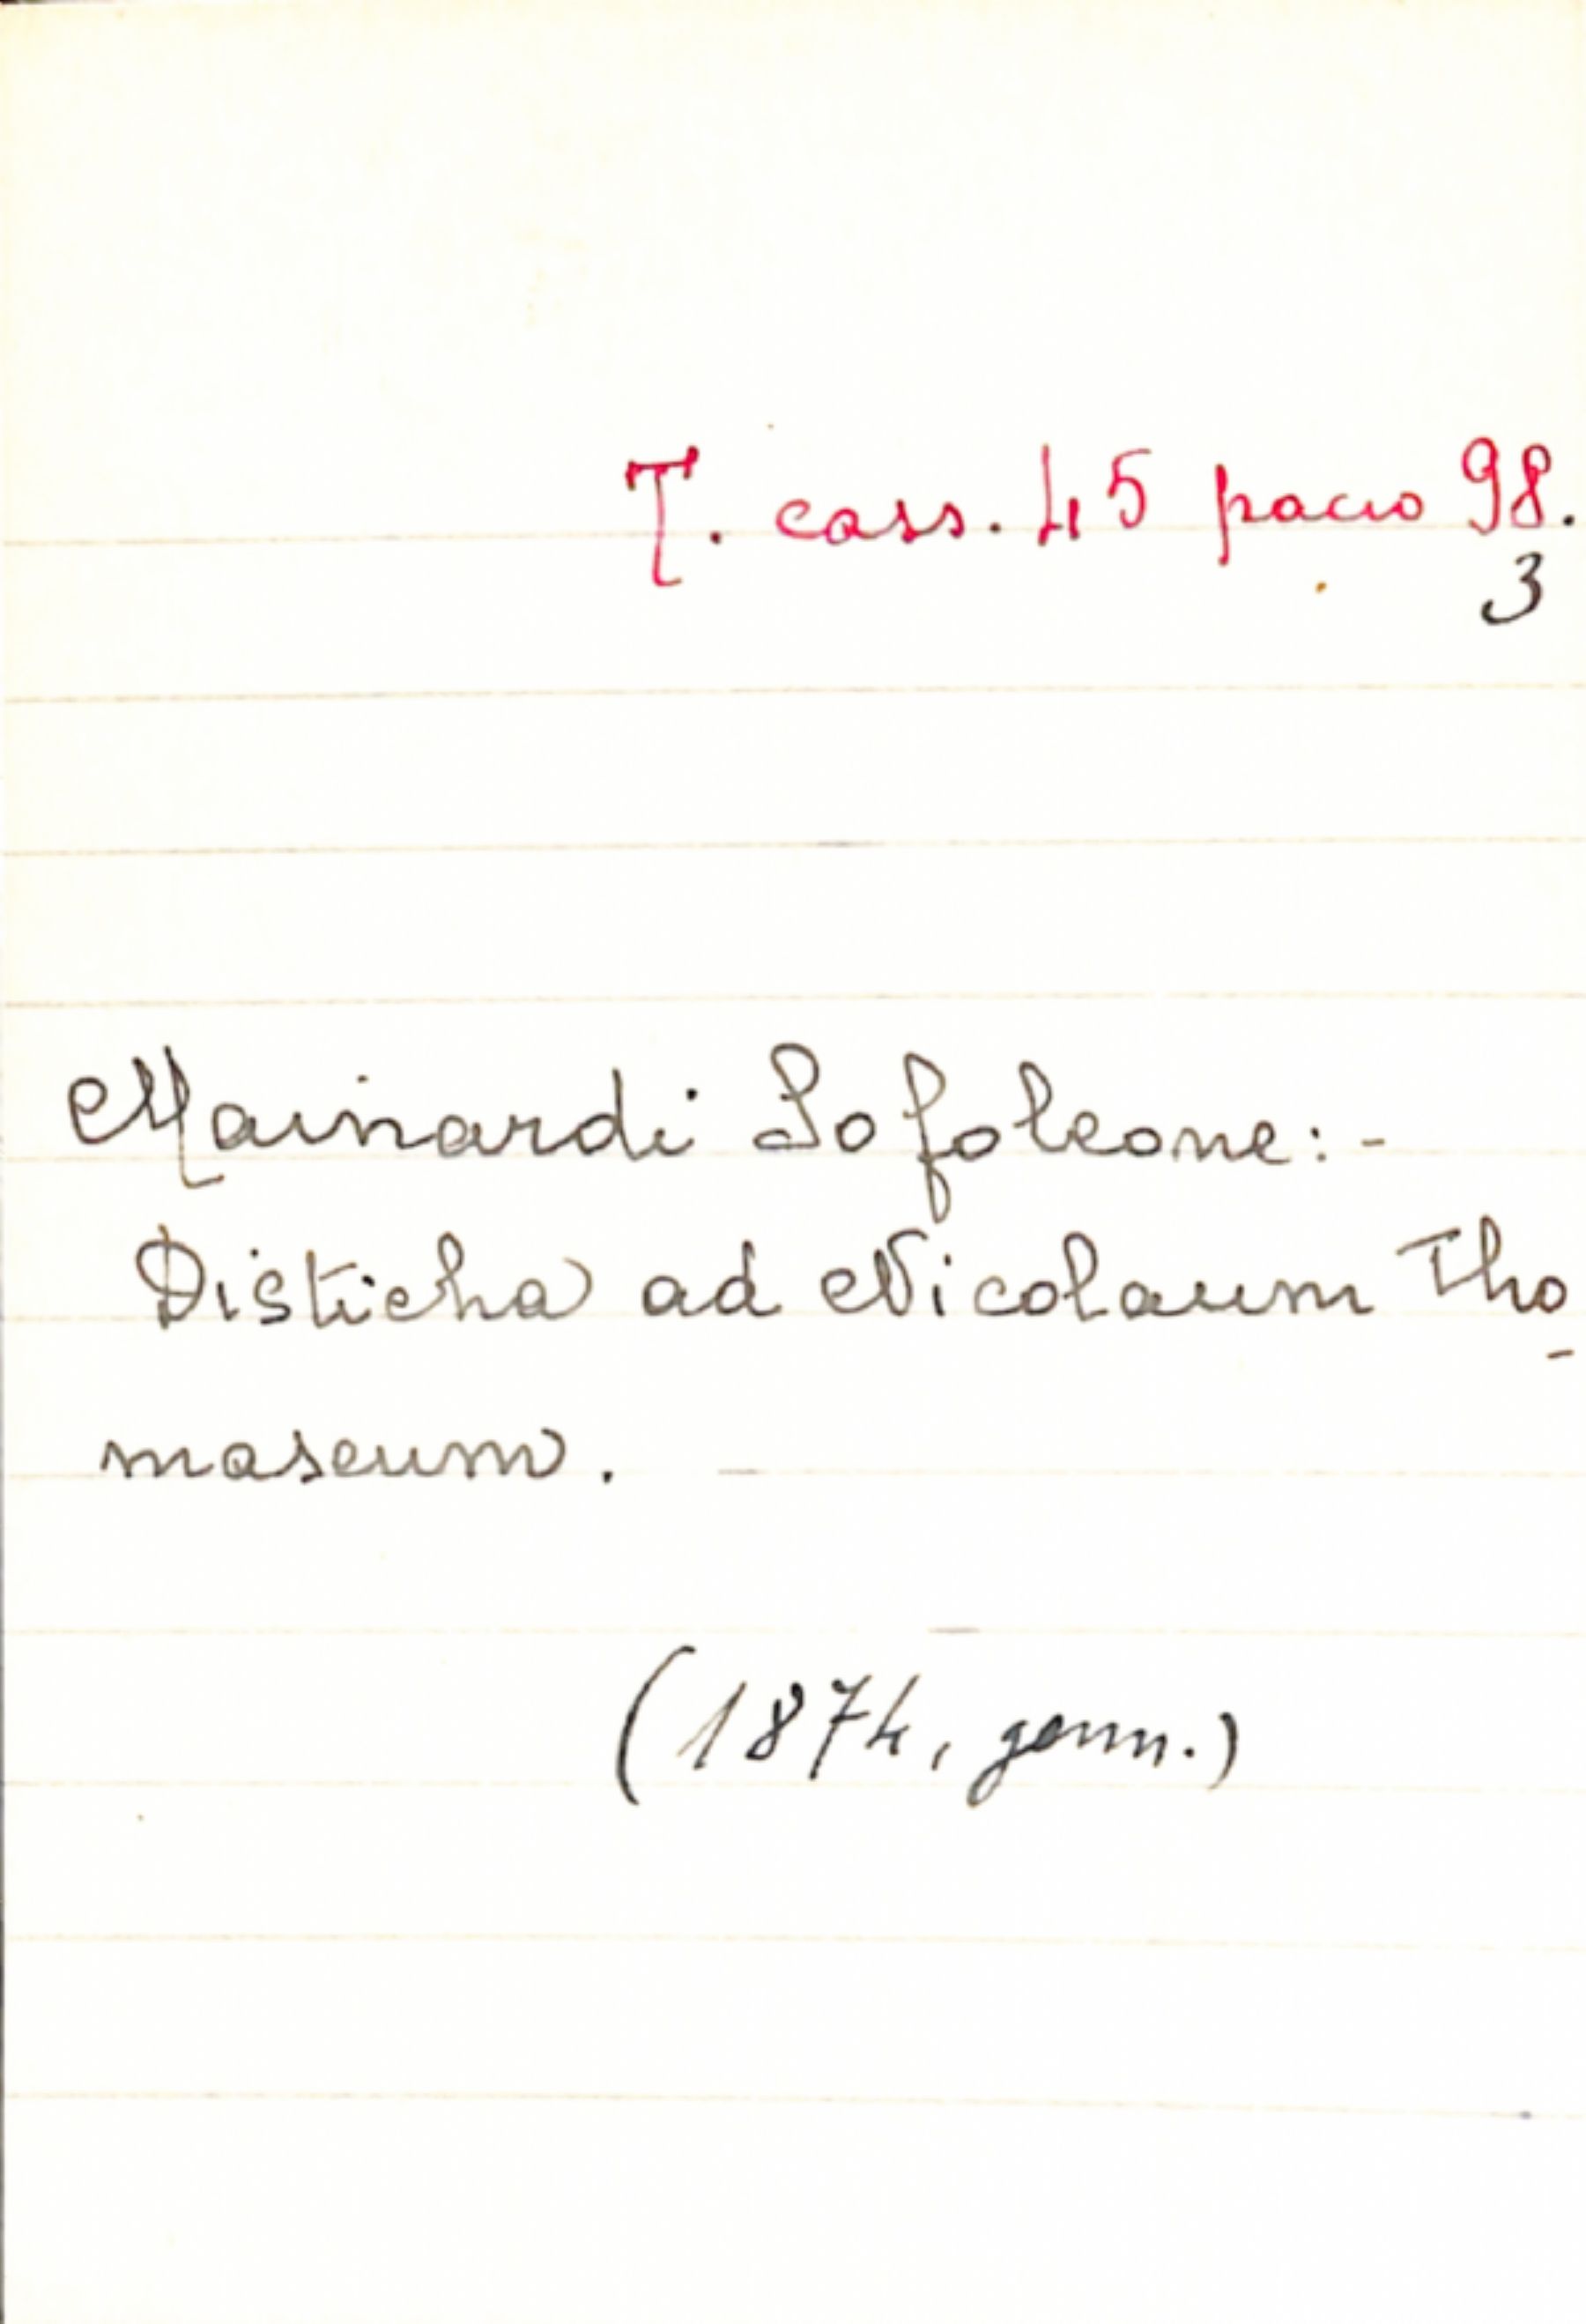 T. cass. 45 pacco 98.
3
Mainardi Sofoleone: -
Disticha ad Nicolaum Tho
-
maseum. -
(1874, genn.)